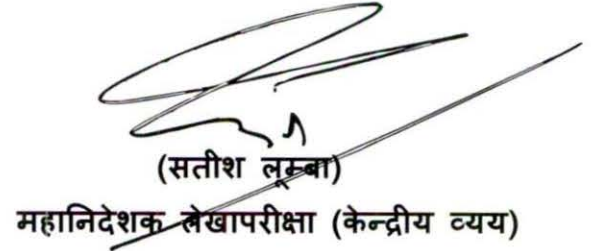 (सतीश लूम्बा)
महानिदेशक लेखापरीक्षा (केन्द्रीय व्यय)